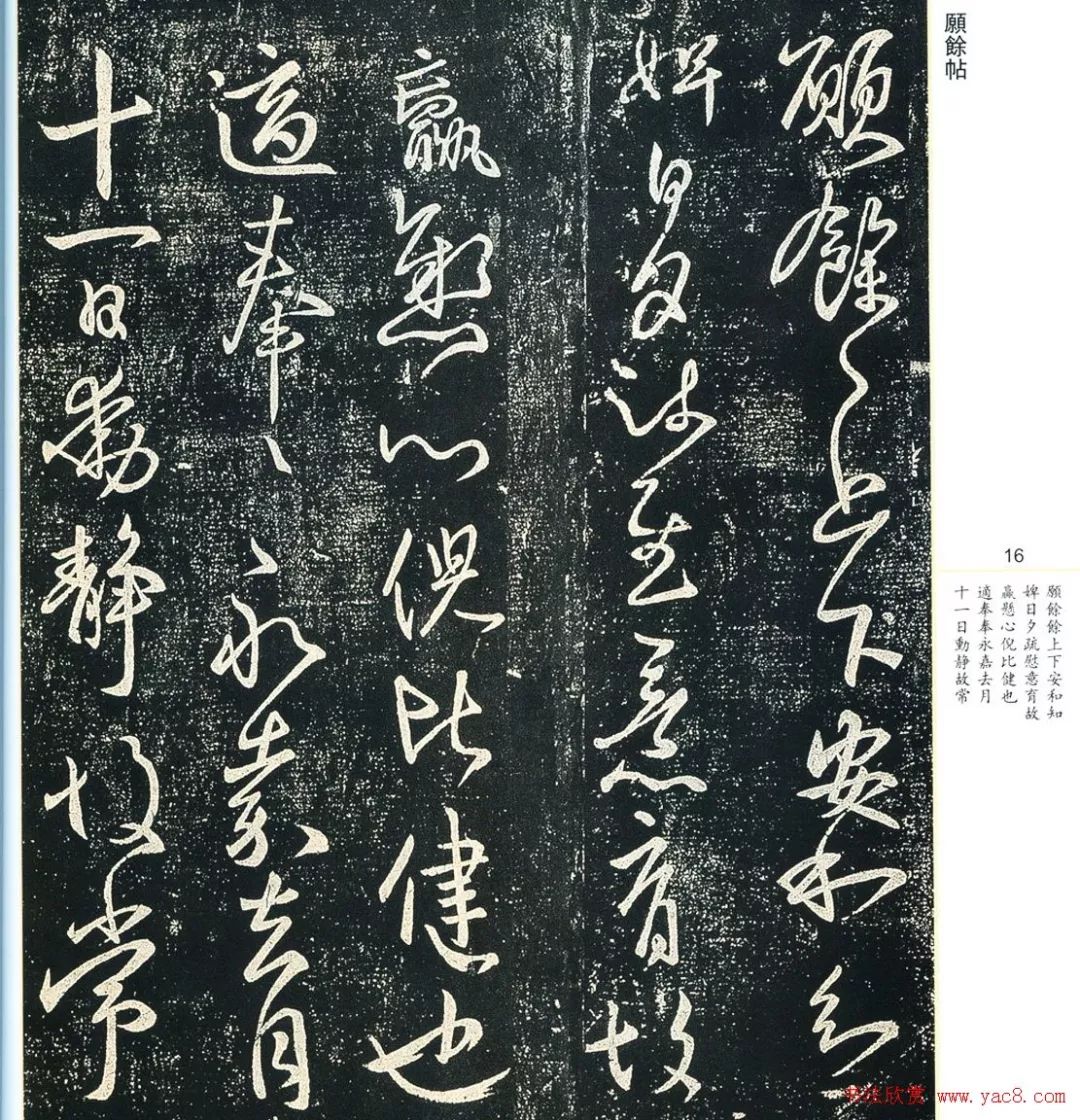 願餘帖
願餘〻上下安和知
婢日夕疏慰意育故
羸懸心俱比健也
適奉〻永嘉去月
十一日動靜故常
16
願餘餘上下安和知
婢日夕疏慰意育故
羸懸心倪比健也
適奉奉永嘉去月
十一日動靜故常
书法欣赏 www.yac8.com